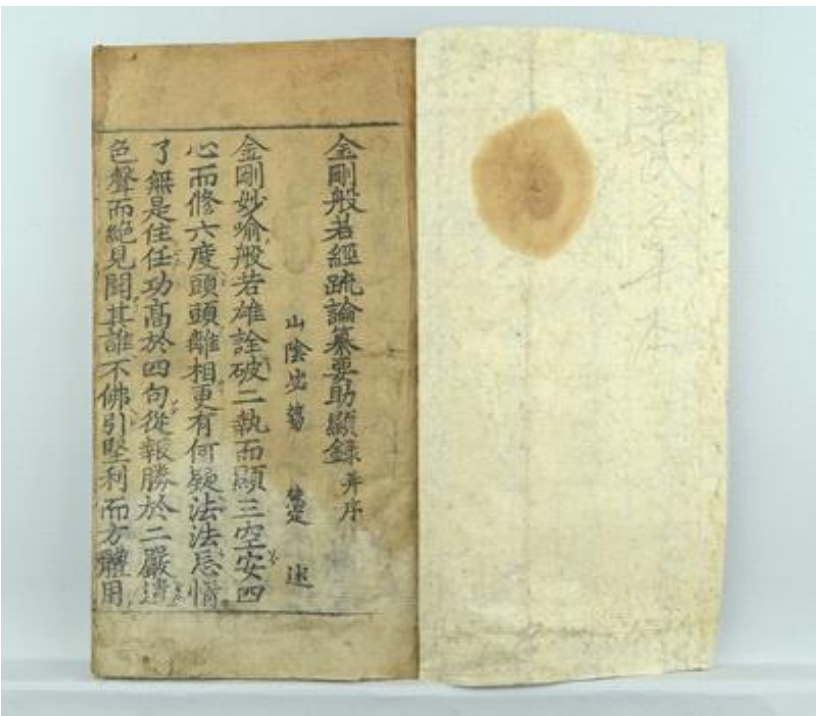 金剛般若經疏論纂要助顯錄 并序
山陰 述
金剛妙喻般若雄詮破二執而顯三空安四
心而修六度頭頭離相更有何疑法法忘情
了無是住任功高於四句從報勝於二嚴遺
色聲而絶見聞其誰不佛引堅利而方體用